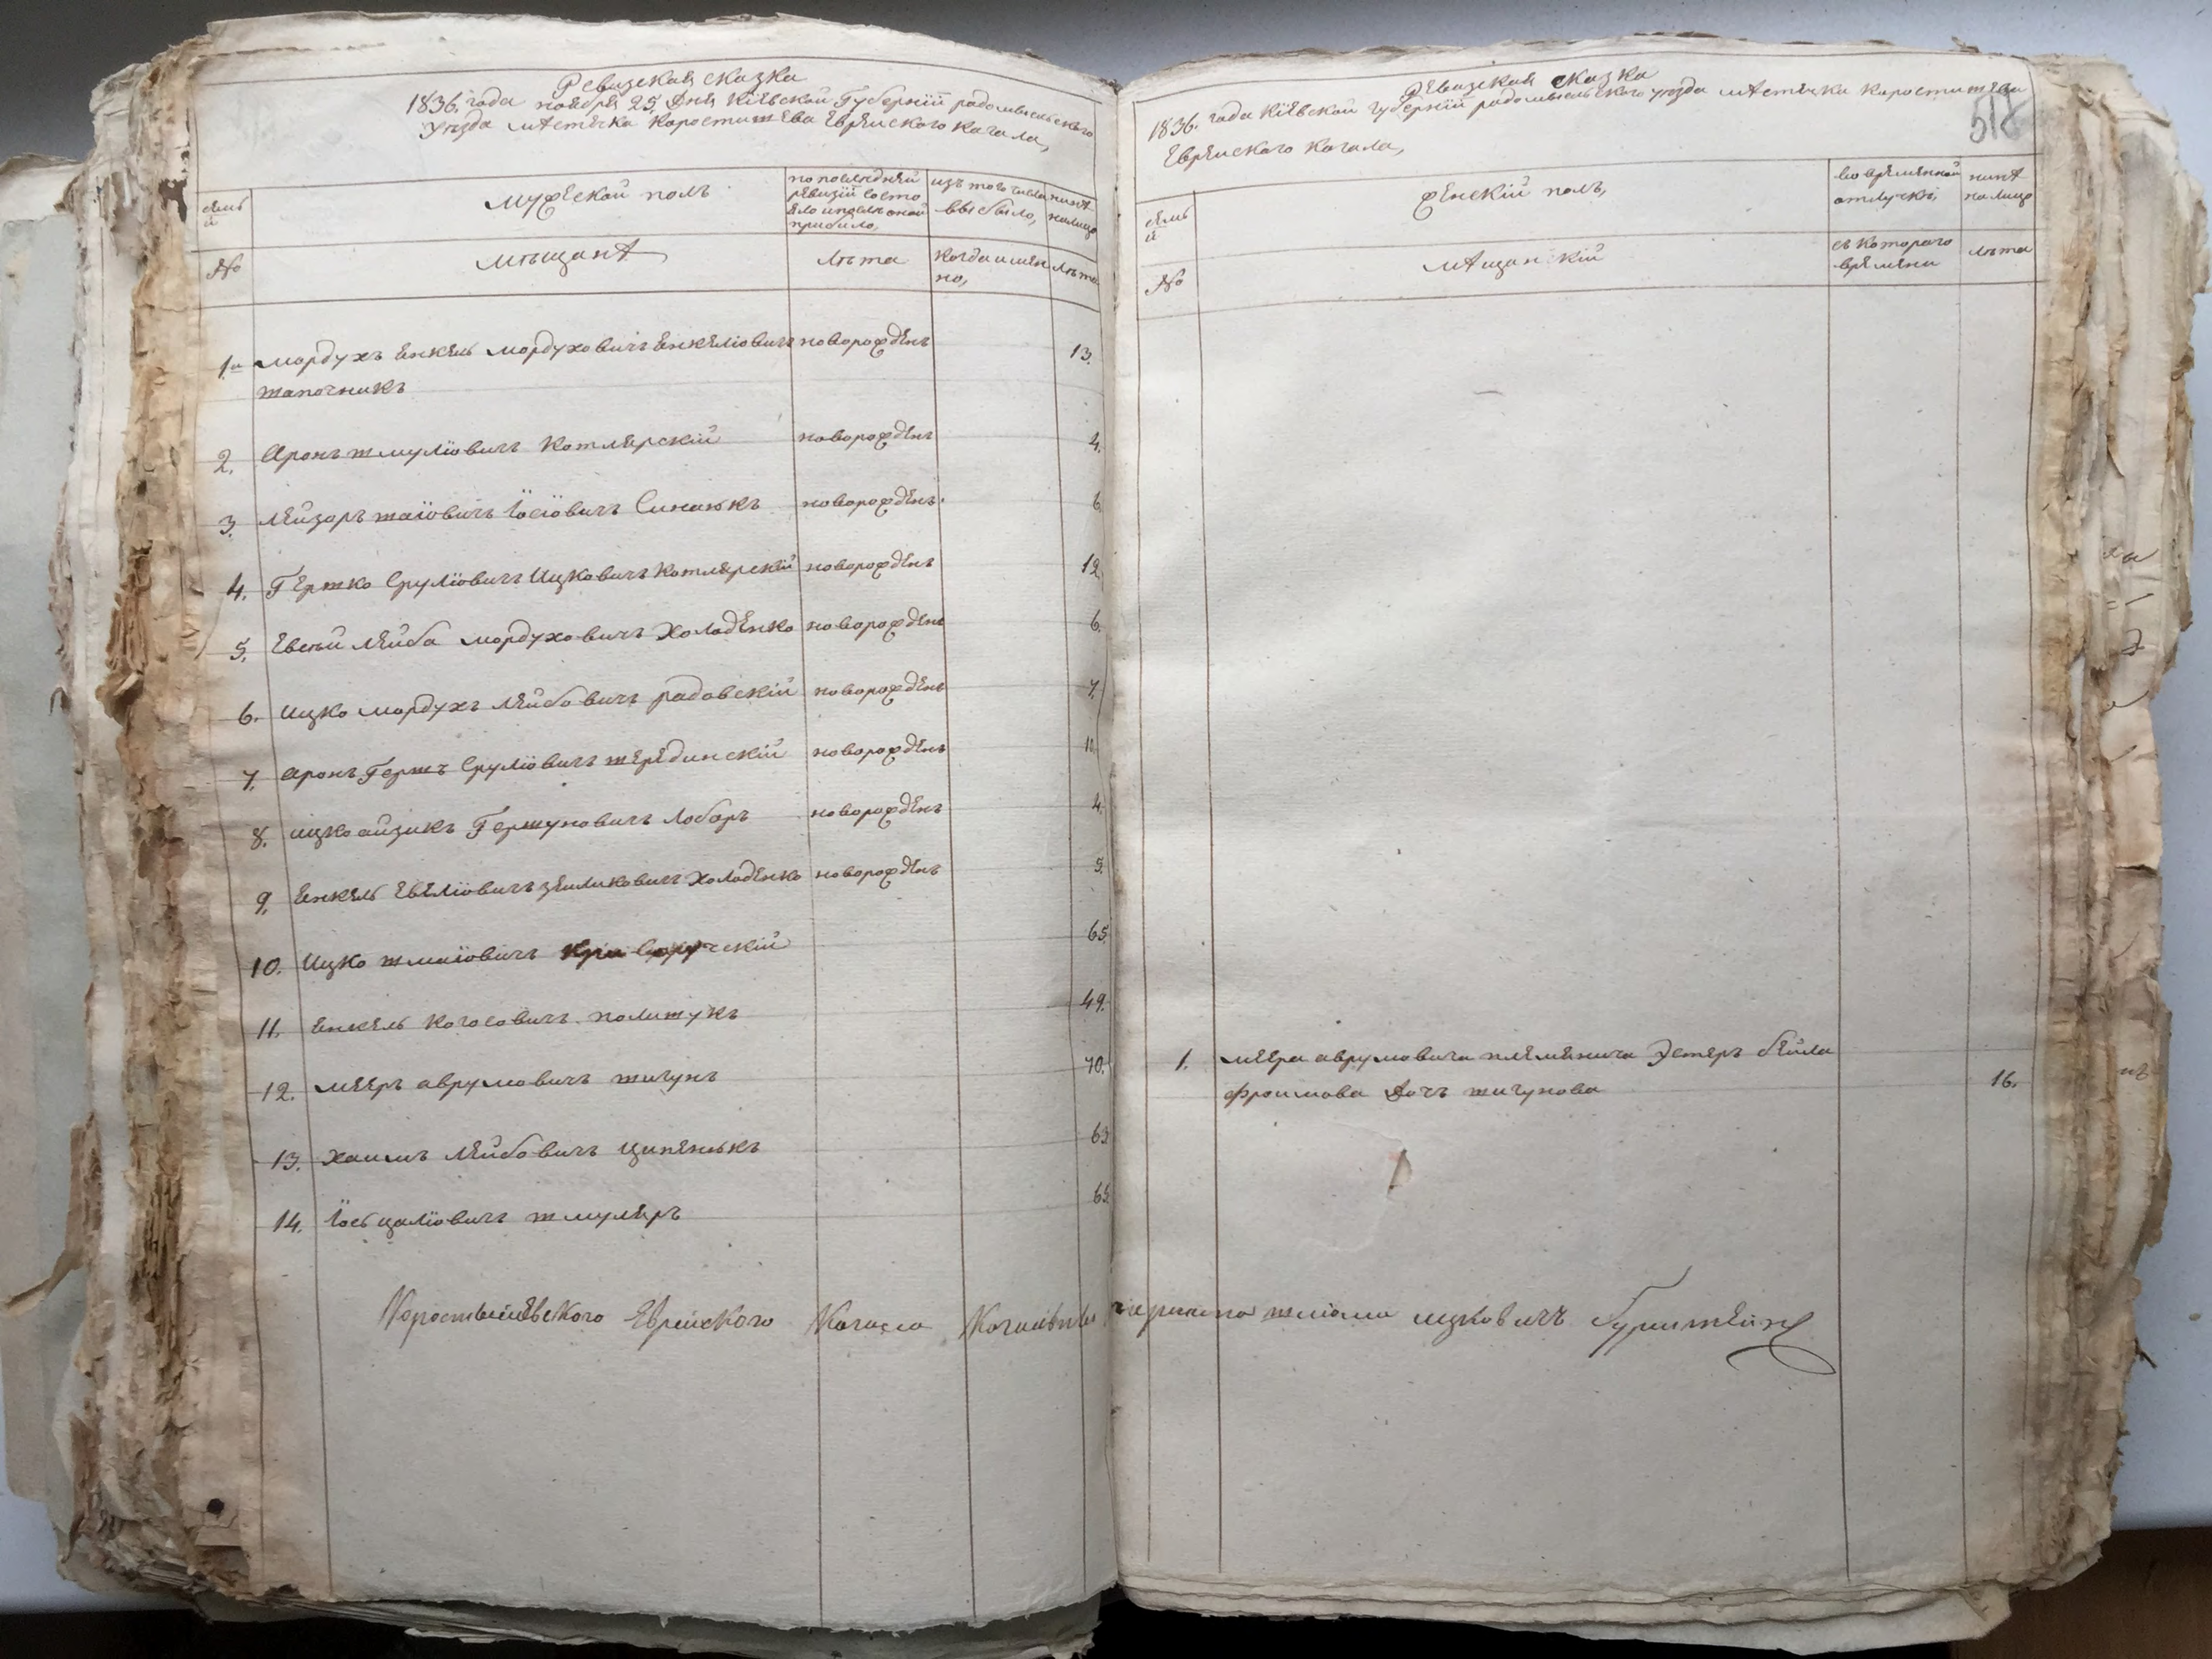 Ревизская сказка
1836. года ноября 25 дня Кіевской Губерніи радомысльского
уезда местечка Коростишева Еврейского Кагала,
семьи
мужеской полъ
по последней ревизіи состояло и после оной прибыло,
изъ того числа выбыло,
ныне налицо
№
мещане
лета
когда именно,
лета
1й Мордухъ Енкель Мордуховичъ Енкеліовичъ новорожденъ 13.
шапочникъ
2. Аронъ шмуліовичъ Котлярскій новорожденъ 4.
3. Лейзоръ шаіовичъ Іосіовичъ новорожденъ. 6
4. Гершко Сруліовичъ Ицковичъ Котлярскій новорожденъ 12
5. Евсей Лейба мордуховичъ Холоденко новорожденъ 6.
6. Ицко мордухъ Лейбовичъ радовскій новорожденъ 7.
7. Аронъ Гершъ Сруліовичъ шерединскій новорожденъ 11.
8. ицко айзикъ Гершуновичъ Лобаръ новорожденъ 4.
9. Енкель Евеліовичъ зейликовичъ Холоденко новорожденъ 5.
10. Ицко шмаіовичъ 65
11. Енкель Когосовичъ полишукъ 49.
12. мееръ аврумовичъ шигунъ 70.
13. Хаимъ Лейбовичъ ципенюкъ 63
14. Іось цаліовичъ шмуляръ 65
Коростышевского Еврейского Кагала
шліома ицковичъ
Ревизская сказка
1836. года Кіевской губерніи радомысльского уезда местечка Коростишева
Еврейского Кагала,
518
семьи
женскій полъ,
во временной отлучкѣ,
ныне налицо
№
мещанскій
съ которого времени
лета
1. меера аврумовича племеница Эстеръ бейла
фроимова дочъ шигунова 16.